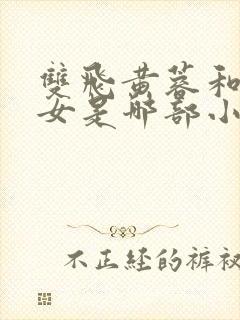 雙飛黃蓉和
女是哪部小
不正經的褲衩